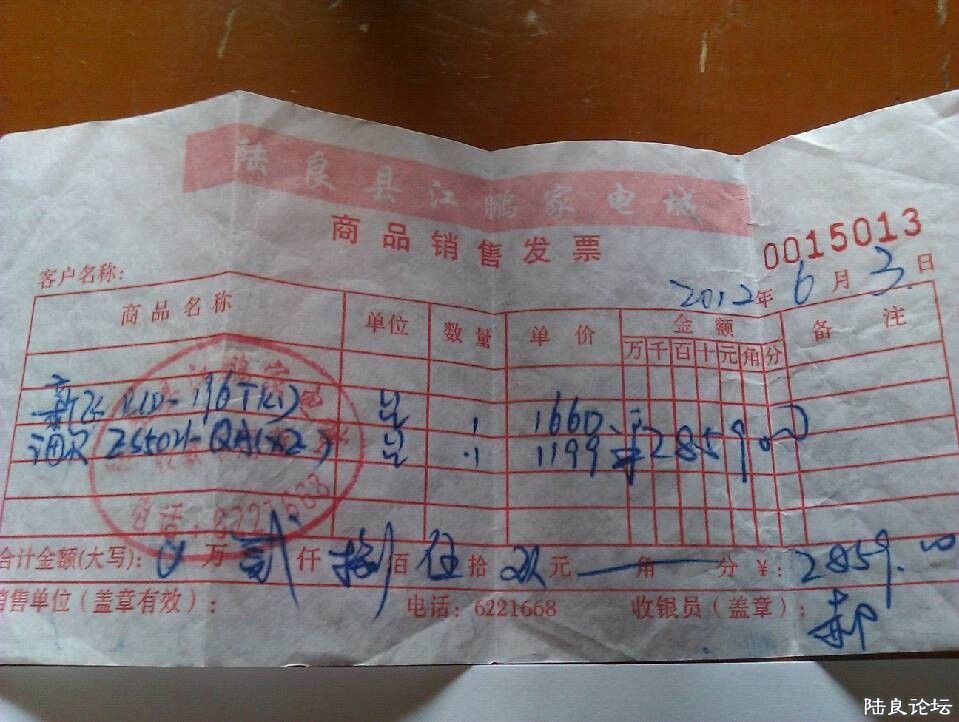 陆良县江鹏家电城
商品销售发票
0015013
客户名称:
2012年6月3日
商品名称 单位 数量 单价 金额 备注
万千百十元角分
196T 台 1 1660
台 1 1199 ¥285900
合计金额(大写): 0万贰仟捌百伍拾玖元 角 分 ¥: 2859.00
销售单位(盖章有效): 电话: 6221668 收银员(盖章):
陆良论坛